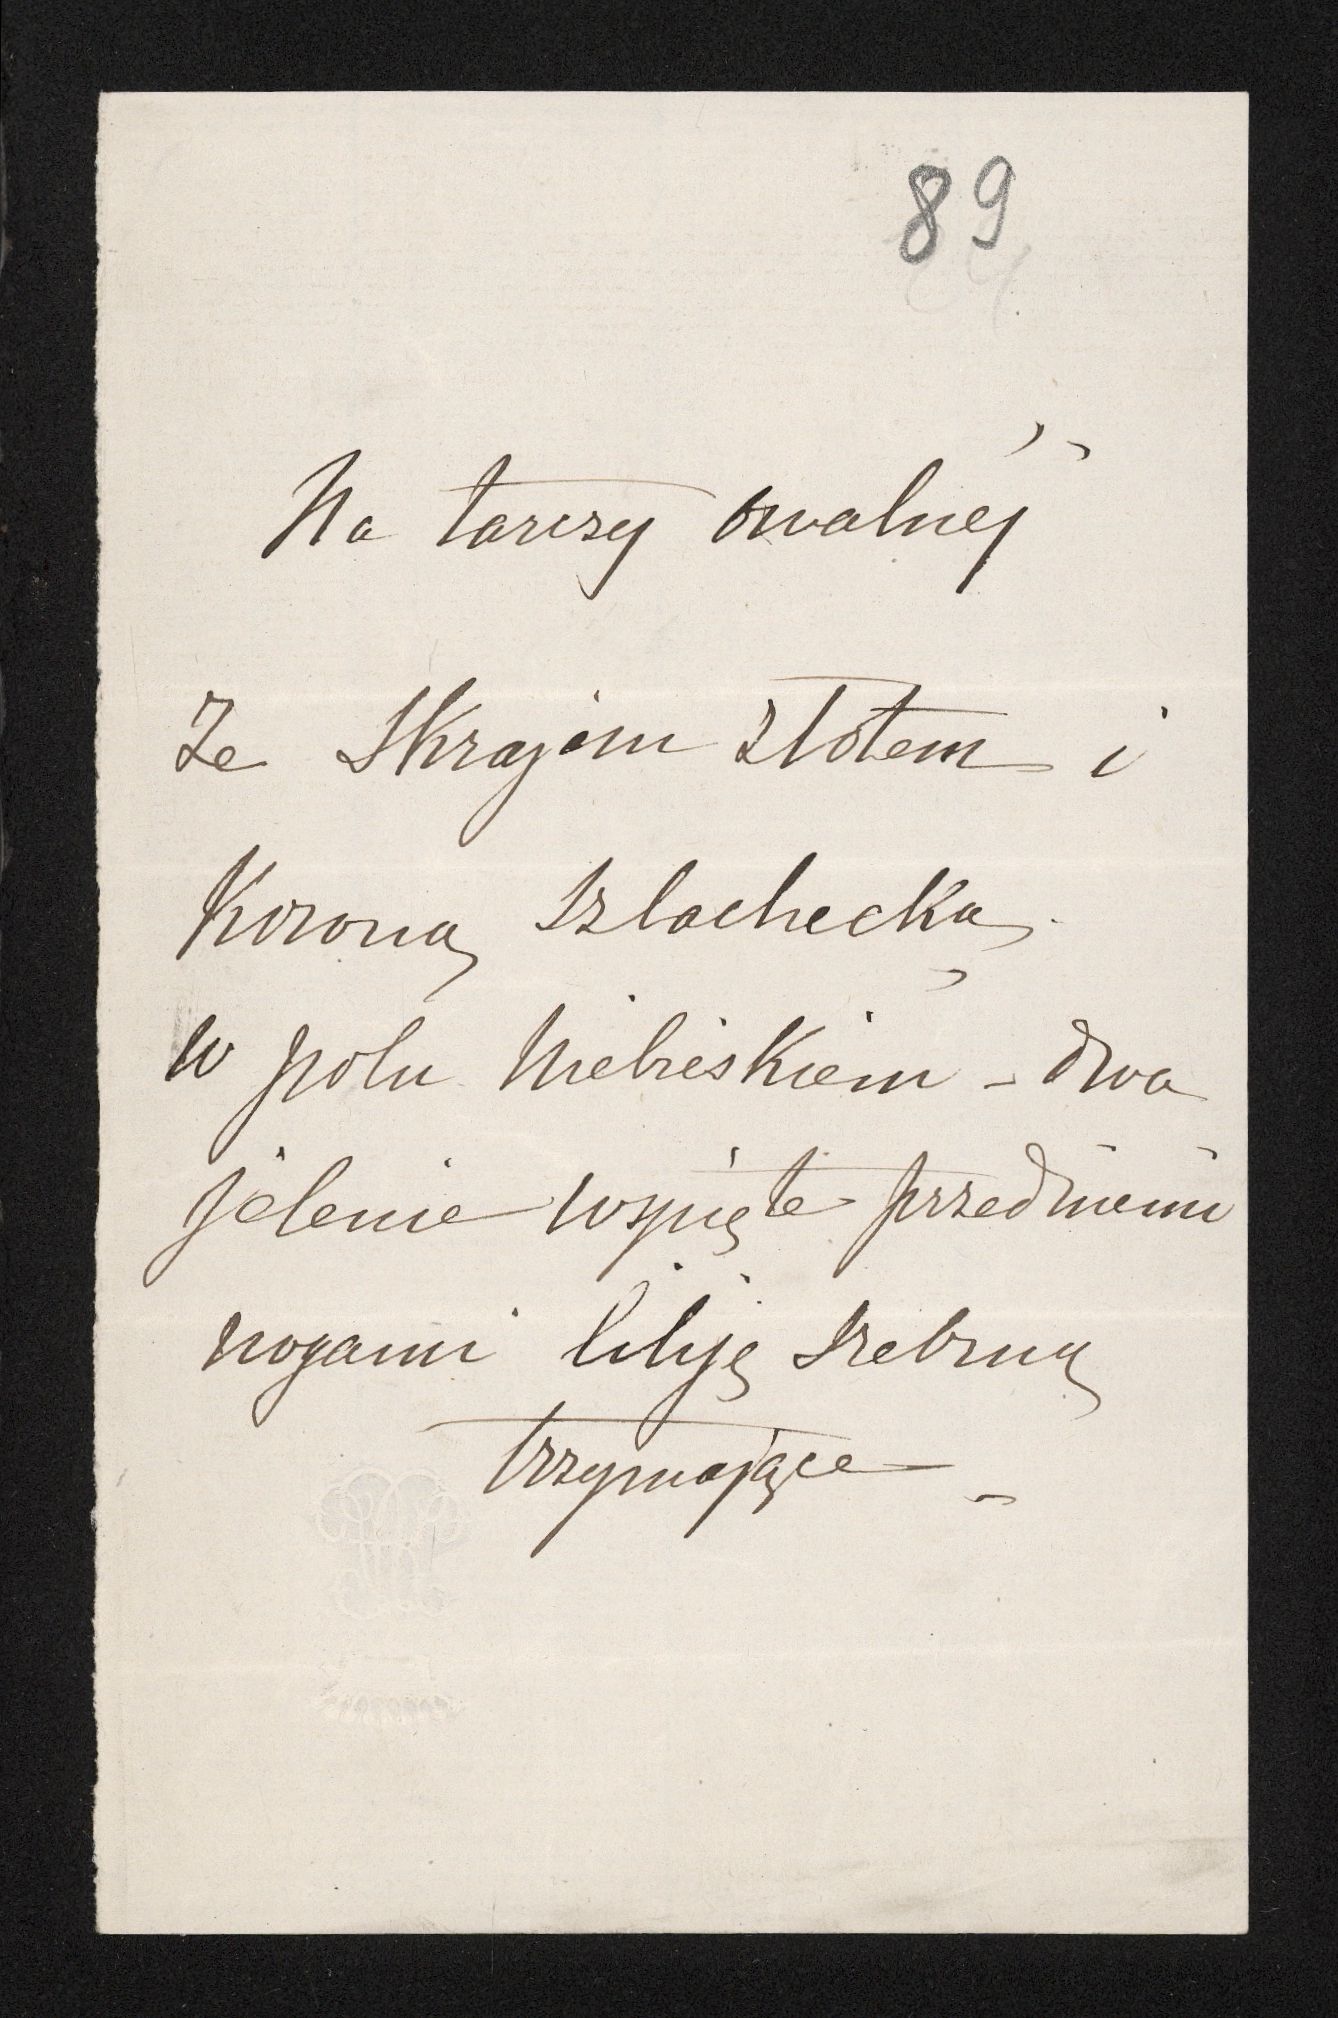 89
Na tarczy owalnéj
ze skrajem złotem i
Koroną szlachecką
w polu niebieskiem - dwa
jelenie wspięte przedniemi
nogami liliję srebrną
trzymające -